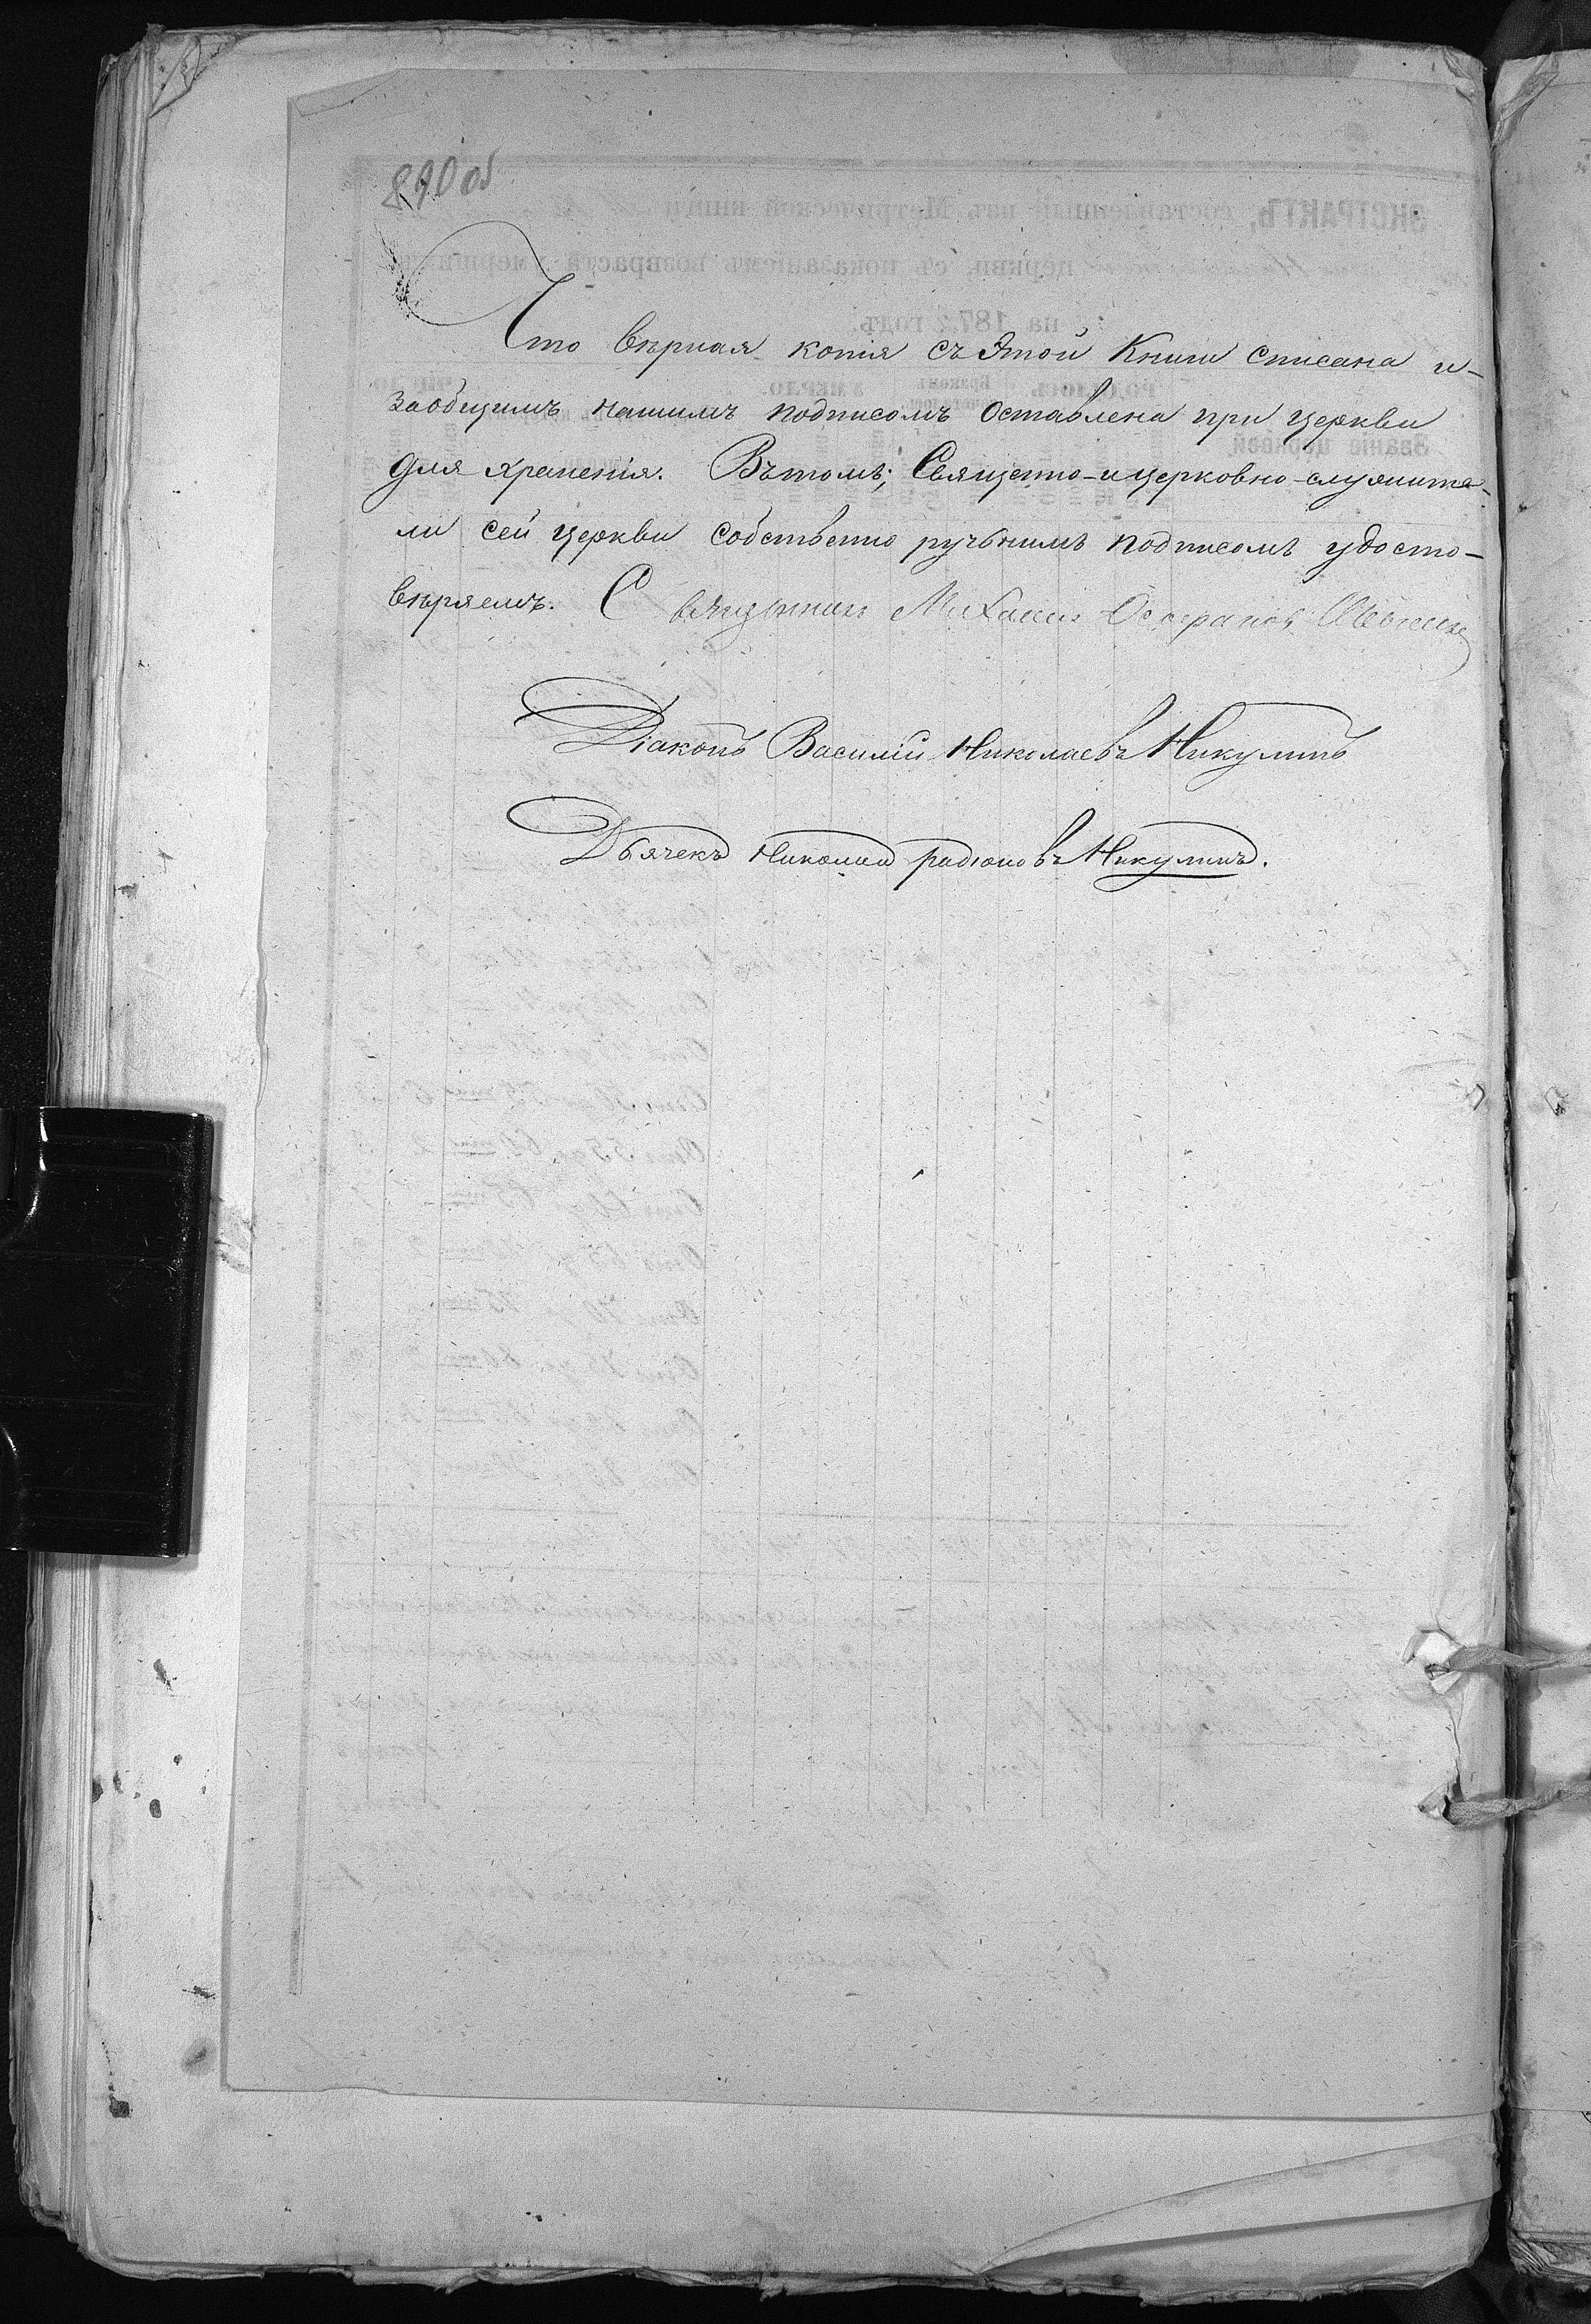 890 об
Что вѣрная копія съ этой Книги списана и-
заобщимъ нашимъ подписомъ оставлена при церкви
для храненія. Въ томъ; Священно-и церковно-служите-
ли сей церкви собственно ручьнимъ подписомъ удосто-
вѣряемъ. Священникъ Михаилъ
Діаконъ Василій Николаевъ Никулинъ
Дьячекъ Николай радіоновъ Никулинъ.